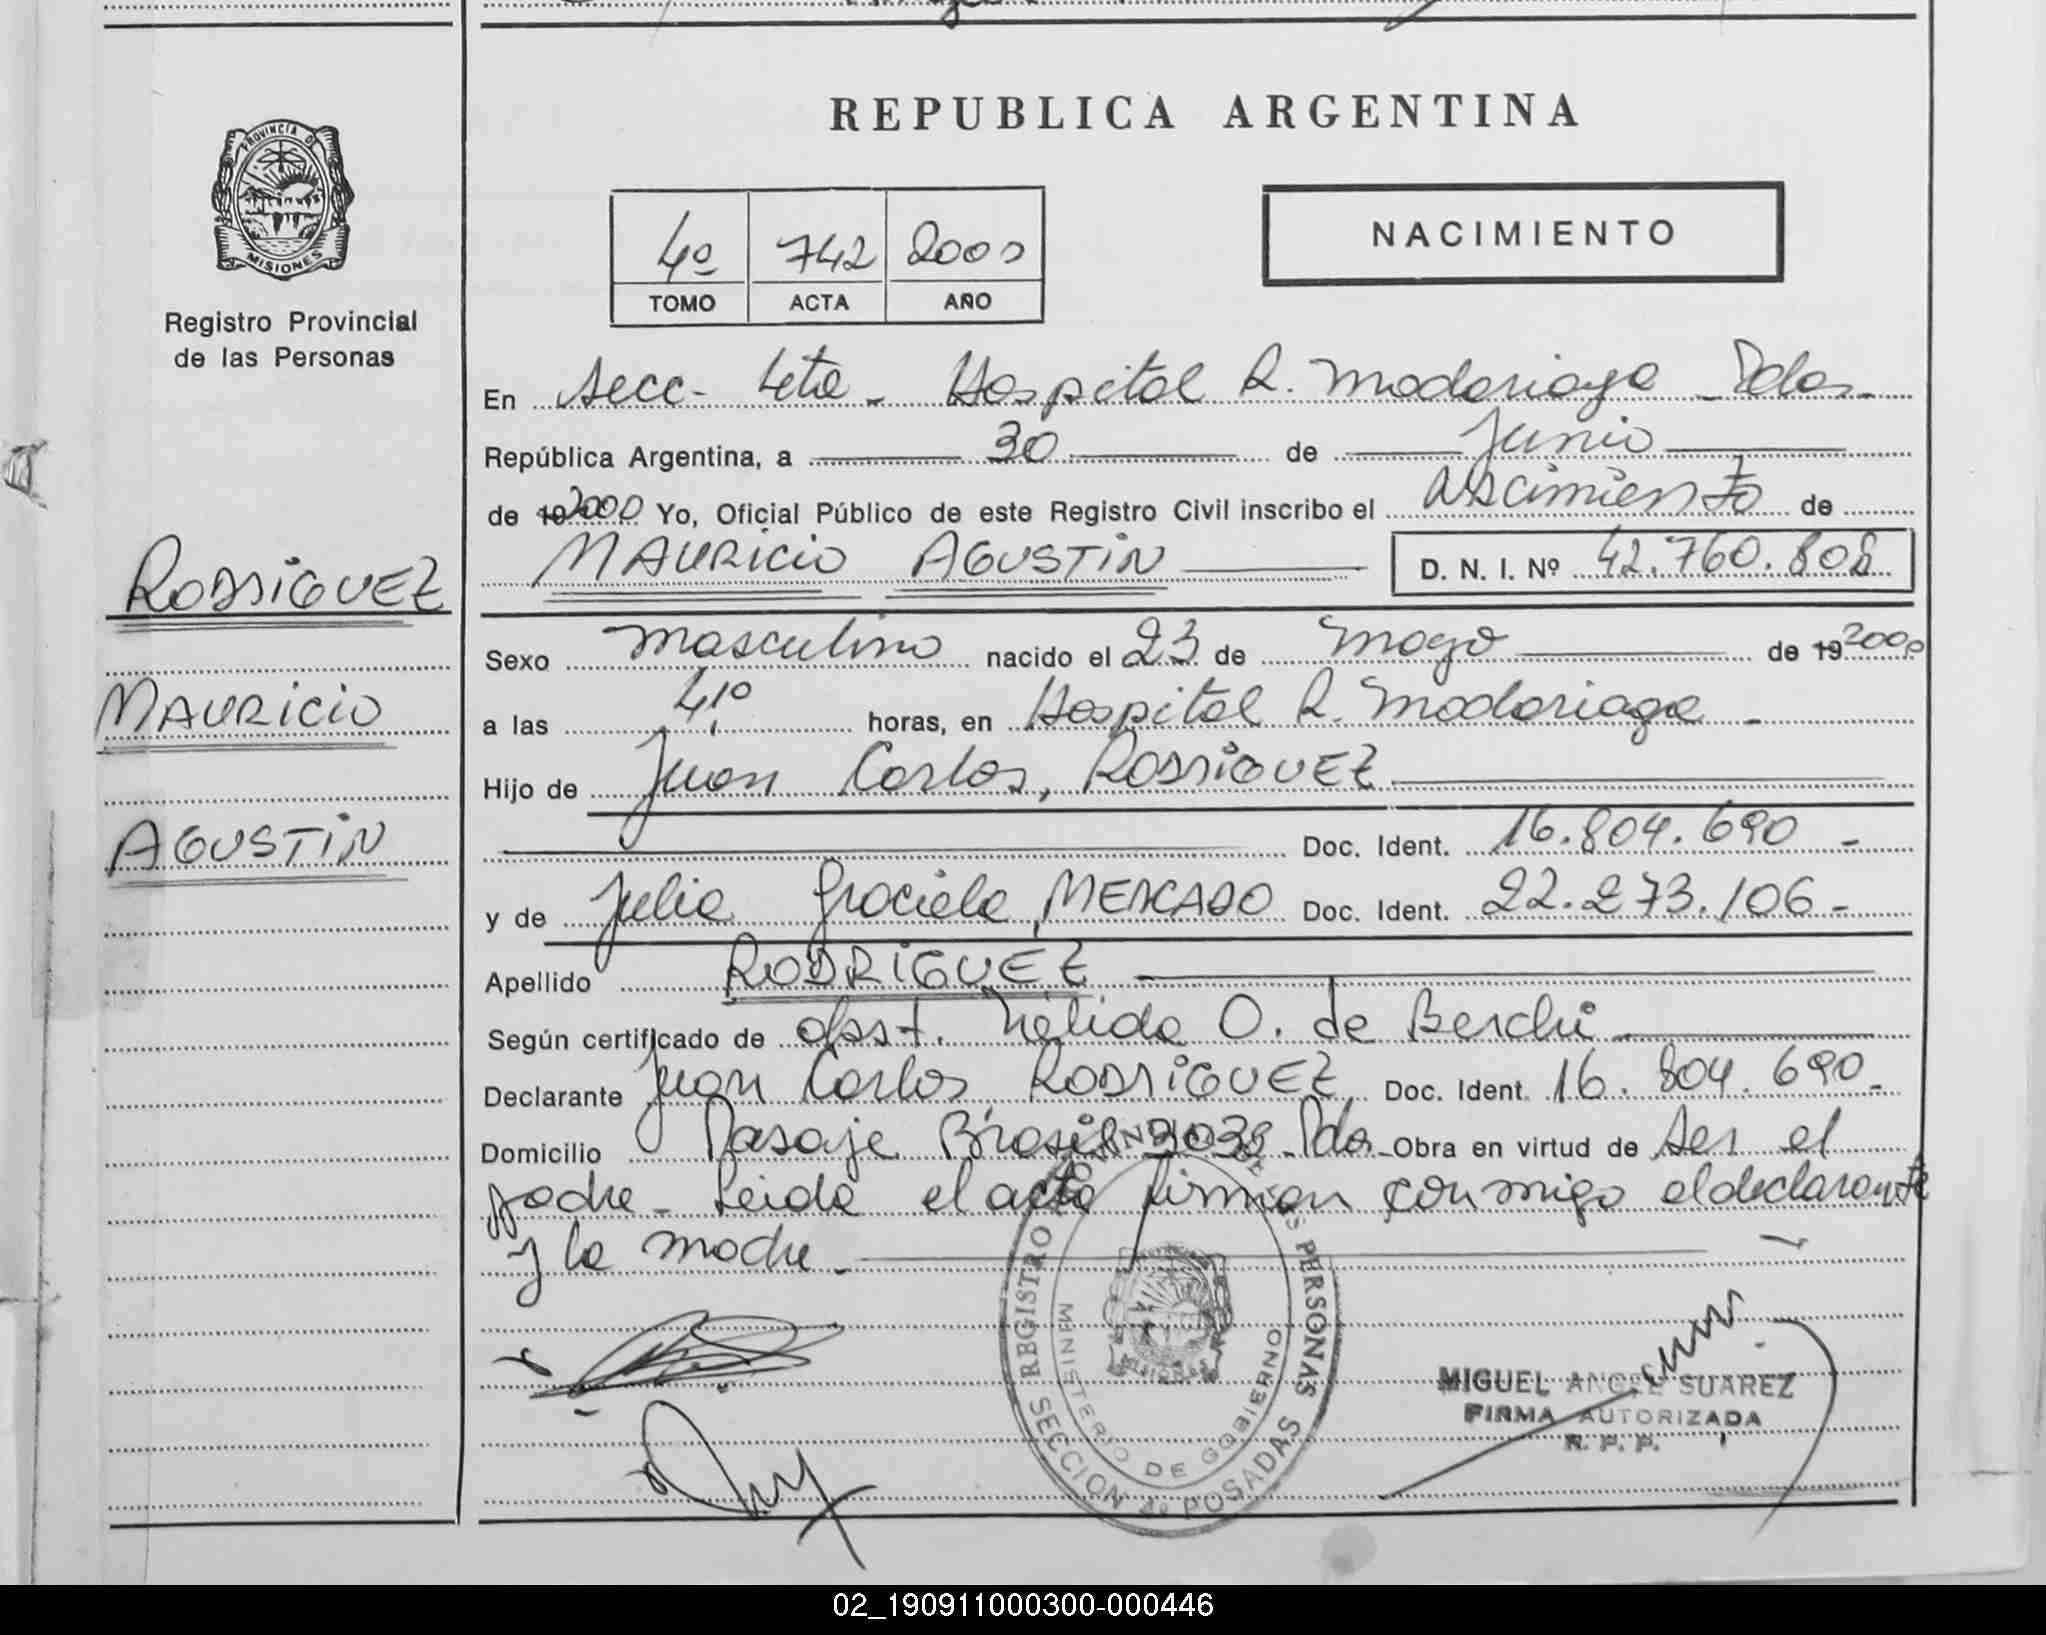 REPUBLICA ARGENTINA
PROVINCIA DE
MISIONES
Registro Provincial
de las Personas
4º 742 2000
TOMO ACTA AÑO
NACIMIENTO
En Secc- 4ta - Hospital R. Madariaga - Pdas.
República Argentina, a 30 de Junio
de 19 2000 Yo, Oficial Público de este Registro Civil inscribo el nacimiento de
MAURICIO AGUSTIN D. N. I. Nº 42.760.808
RODRIGUEZ
MAURICIO
AGUSTIN
Sexo masculino nacido el 23 de mayo de 19 2000
a las 4,10 horas, en Hospital R. Madariaga -
Hijo de Juan Carlos, RODRIGUEZ
Doc. Ident. 16.804.690 -
y de Julia Graciela, MERCADO Doc. Ident. 22.273.106 -
Apellido RODRIGUEZ
Según certificado de obst. Nélida O. de Berchi
Declarante Juan Carlos, RODRIGUEZ Doc. Ident. 16.804.690 -
Domicilio Pasaje Brasil 3038 - Pdas - Obra en virtud de ser el
padre - Leida el acta firman conmigo el declarante
y la madre -
REGISTRO PERSONAS
MINISTERIO DE GOBIERNO
MISIONES
SECCION 4º POSADAS
MIGUEL ANGEL SUAREZ
FIRMA AUTORIZADA
R. P. P.
02_190911000300-000446